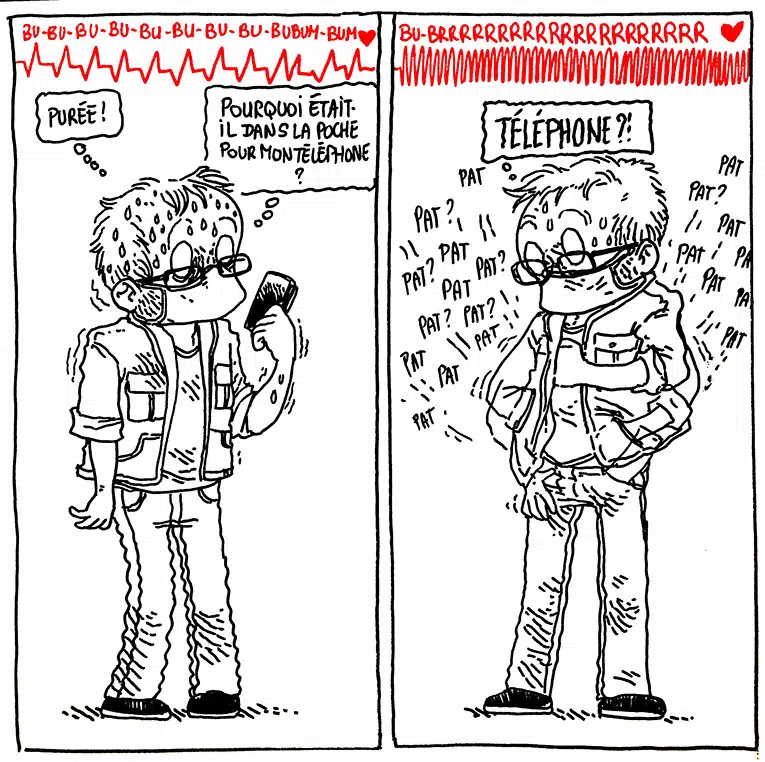 BU-BU-BU-BU-BU-BU-BU-BU-BUBUM-BUM
PURÉE!
POURQUOI ÉTAIT-
IL DANS LA POCHE
POUR MON TÉLÉPHONE
?
BU-BRRRRRRRRRRRRRRRRRRRR
TÉLÉPHONE?!
PAT
PAT?
PAT
PAT?
PAT?
PAT
PAT?
PAT?
PAT
PAT
PAT
PAT
PAT
PAT?
PAT
PAT
PAT
PAT